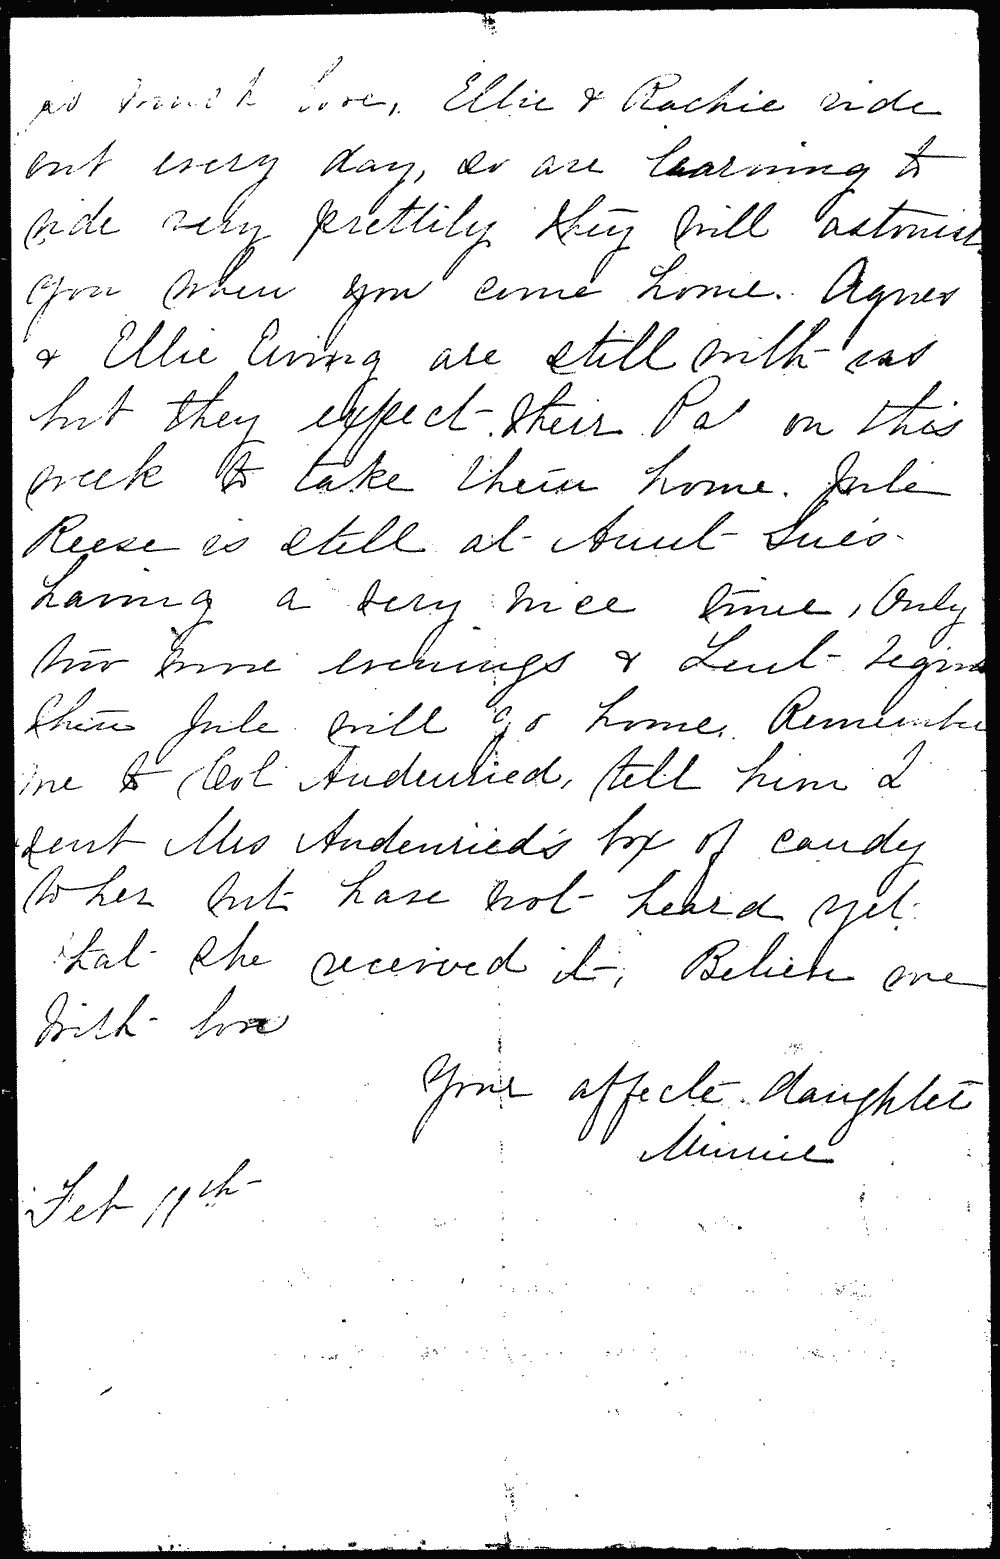 so much love, Ellie & Rachie ride
out every day, so are learning to
ride very prettily they will astonish
you when you come home. Agnes
& Ellie Ewing are still with us
but they expect their Pa on this
week to take them home. Jule
Reese is still at Aunt Sue's
having a very nice time, Only
two more evenings & Lent begins
then Jule will go home. Remember
me to Col Audenried, tell him I
sent Mrs Audenried's box of candy
to her but have not heard yet
that she received it, Believe me
With love
Your affecte daughter
Minnie
Feb 11th